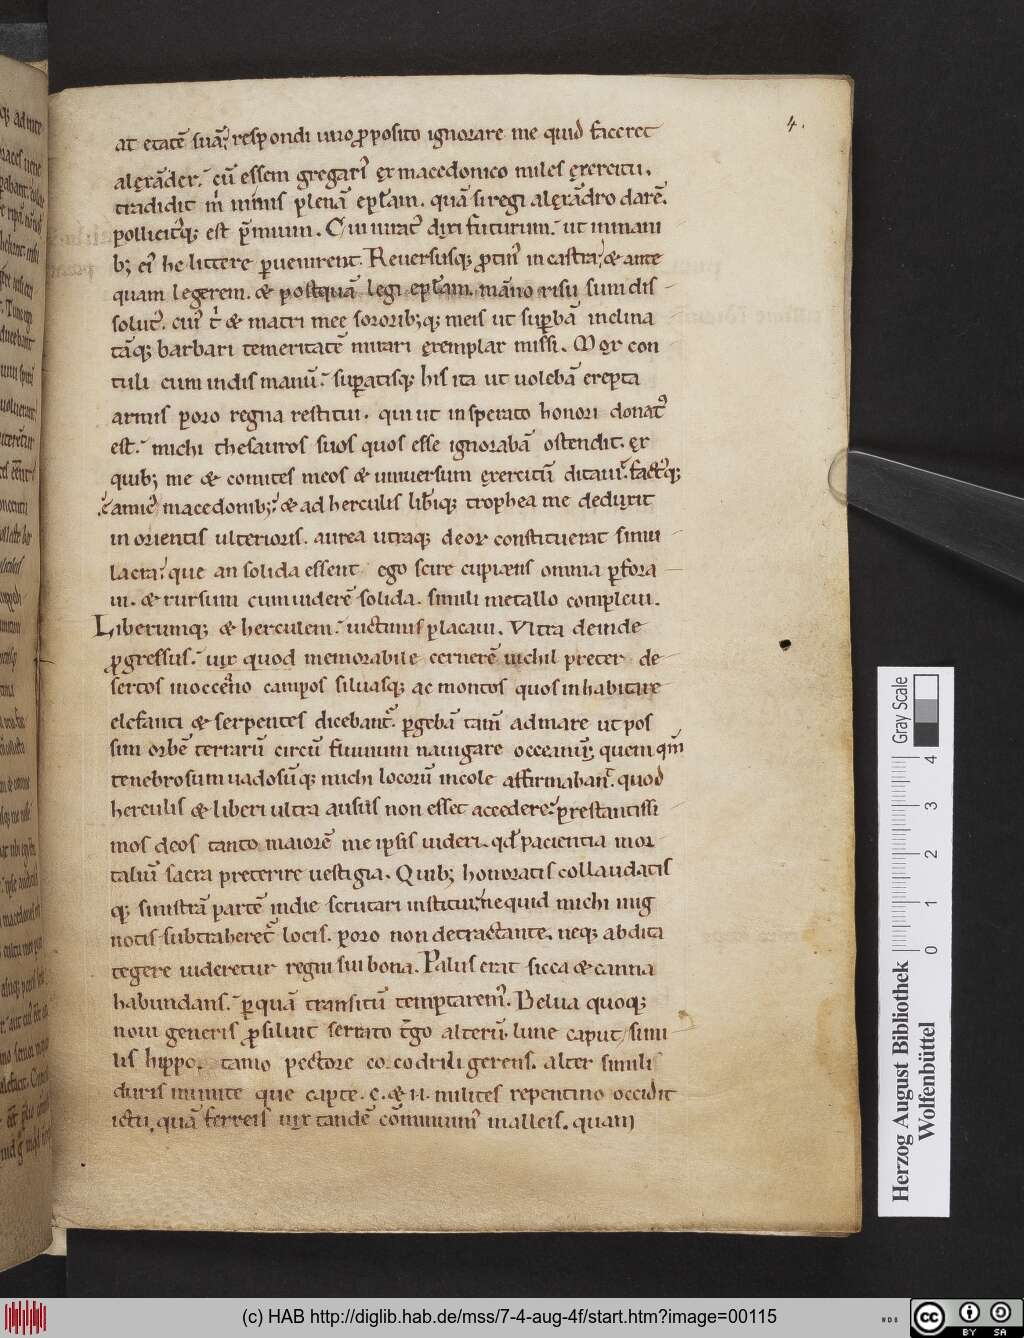 4.
at etatē suā; respondi uiro proposito ignorare me quid faceret
alexāder. cū essem gregari᷒ ex macedonico miles exercitu.
tradidit m̓ minis plenā epl̄am. quā si regi alexādro darē.
pollicitꝰq; est p̄mium. Cui iurat᷒ dixi futurum. ut in mani
b; ei᷒ he littere peruenirent. Reuersusq; protin᷒ in castra, & ante
quam legerem. & postquā legi epl̄am. mā no risu sum dis
solut᷒. & matri mee sororib;q; meis ut superbā inclina
tāq; barbari temeritatē mirari exemplar missi. Mox con
tuli cum indis manū. superatisq; his ita ut uolebā erepta
armis poro regna restitui. qui ut insperato honori donat᷒
est. michi thesauros suos quos esse ignorabā ostendit. ex
quib; me & comites meos & uniuersum exercitū ditaui. fact᷒q;
amic᷒ macedonib; & ad herculis lib̄iq; trophea me deduxit
in orientis ulterioris. aurea utraq; deor constituerat simu
lacra. que an solida essent ego scire cupiens omnia perfora
ui. & rursum cum uiderē solida. simili metallo compleui.
Liberumq; & herculem. uictimis placaui. Vltra deinde
progressus. uix quod memorabile cernerē nichil preter de
sertos in occeano campos siluasq; ac montes quos inhabitare
elefanti & serpentes dicebant᷒. pergebā tam̄ ad mare ut pos
sim orbē terrarū circū fluuium nauigare occeanū, quem qm̄
tenebrosum uadosūq; michi locorū incole affirmaban̄t. quod
herculis & liberi ultra ausus non esset accedere. prestantissi
mos deos tanto maiorē me ipsis uideri. qd̄ paciencia mor
taliū sacra preterire uestigia. Quib; honoratis collaudatis
q; sinistrā partē indie scrutari institui, ne quid michi in ig
notis subtraheret᷒ locis. poro non detractante. neq; abdita
tegere uideretur regni sui bona. Palus erat sicca & canna
habundans. per quā transitū temptarem᷒. Belua quoq;
noui generis prosiluit serrato tergo alterū lune caput simi
lis hippo tamo pectore cocodrili gerens. alter simili
duris munite que capte. c. & ii. milites repentino occidit
ictu, quā ferreis uix tandē cōminuim᷒ malleis. quam
Gray Scale
0 1 2 3 4
Herzog August Bibliothek
Wolfenbüttel
(c) HAB http://diglib.hab.de/mss/7-4-aug-4f/start.htm?image=00115
cc BY SA